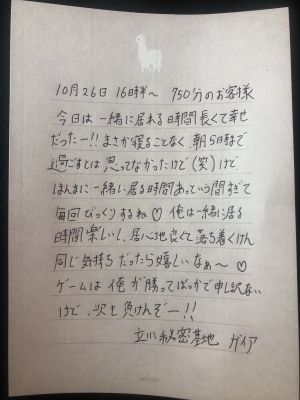 10月26日 16時半〜 750分のお客様
今日は一緒に居れる時間長くて幸せ
だったー!! まさか寝ることなく朝5時まで
過ごすとは思ってなかったけど(笑)けど
ほんまに一緒に居る時間あっという間すぎて
毎回びっくりするね♡ 俺は一緒に居る
時間楽しいし、居心地良くて落ち着くけん
同じ気持ちだったら嬉しいなぁ〜♡
ゲームは俺が勝ってばっかで申し訳ない
けど、次も負けんぞー!!
立川秘密基地 ガイア